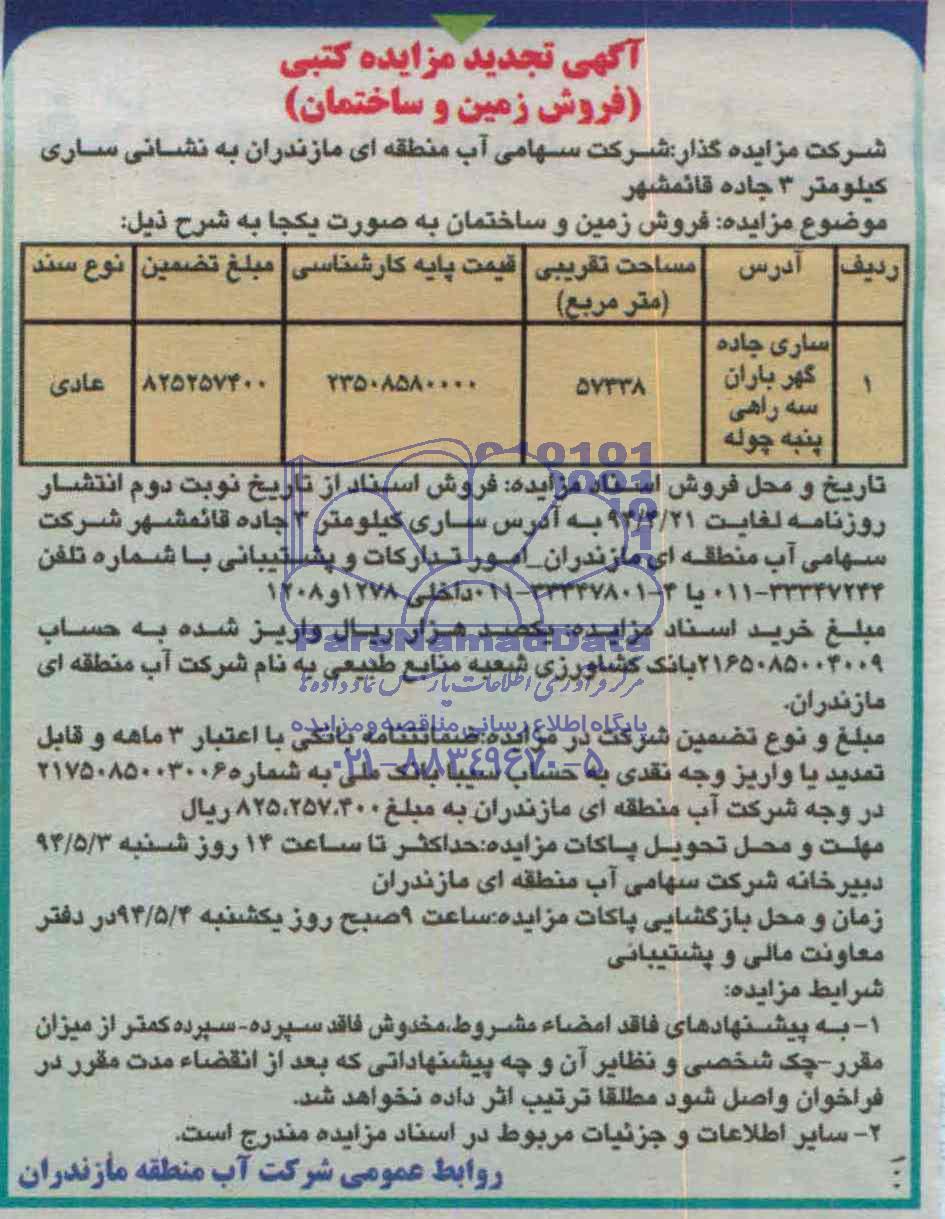 آگهی تجدید مزایده کتبی
(فروش زمین و ساختمان)
شرکت مزایده گذار:شرکت سهامی آب منطقه ای مازندران به نشانی ساری
کیلومتر ۳ جاده قائمشهر
موضوع مزایده: فروش زمین و ساختمان به صورت یکجا به شرح ذیل:
ردیف آدرس مساحت تقریبی (متر مربع) قیمت پایه کارشناسی مبلغ تضمین نوع سند
۱ ساری جاده گهر باران سه راهی پنبه چوله ۵۷۳۳۸ ۲۳۵۰۸۵۸۰۰۰۰ ۸۲۵۲۵۷۴۰۰ عادی
تاریخ و محل فروش اسناد مزایده: فروش اسناد از تاریخ نوبت دوم انتشار
روزنامه لغایت ۹۴/۴/۲۱ به آدرس ساری کیلومتر ۳ جاده قائمشهر شرکت
سهامی آب منطقه ای مازندران_امور تدارکات و پشتیبانی با شماره تلفن
۰۱۱-۳۳۳۴۷۲۴۴ یا ۴-۰۱۱-۳۳۳۴۷۸۰۱داخلی ۱۲۷۸و۱۲۰۸
مبلغ خرید اسناد مزایده: یکصد هزار ریال واریز شده به حساب
۲۱۶۵۰۸۵۰۰۴۰۰۹بانک کشاورزی شعبه منابع طبیعی به نام شرکت آب منطقه ای
مازندران.
مبلغ و نوع تضمین شرکت در مزایده:ضمانتنامه بانکی با اعتبار ۳ ماهه و قابل
تمدید یا واریز وجه نقدی به حساب سیبا بانک ملی به شماره۲۱۷۵۰۸۵۰۰۳۰۰۶
در وجه شرکت آب منطقه ای مازندران به مبلغ ۸۲۵،۲۵۷،۴۰۰ریال
مهلت و محل تحویل پاکات مزایده:حداکثر تا ساعت ۱۴ روز شنبه ۹۴/۵/۳
دبیرخانه شرکت سهامی آب منطقه ای مازندران
زمان و محل بازگشایی پاکات مزایده:ساعت ۹صبح روز یکشنبه ۹۴/۵/۴در دفتر
معاونت مالی و پشتیبانی
شرایط مزایده:
۱- به پیشنهادهای فاقد امضاء مشروط،مخدوش فاقد سپرده-سپرده کمتر از میزان
مقرر-چک شخصی و نظایر آن و چه پیشنهاداتی که بعد از انقضاء مدت مقرر در
فراخوان واصل شود مطلقا ترتیب اثر داده نخواهد شد.
۲- سایر اطلاعات و جزئیات مربوط در اسناد مزایده مندرج است.
روابط عمومی شرکت آب منطقه مازندران
ParsNamadData
مرکز فرآوری اطلاعات پارس نماد داده ها
پایگاه اطلاع رسانی مناقصه و مزایده
۰۲۱-۸۸۳۴۹۶۷۰-۵